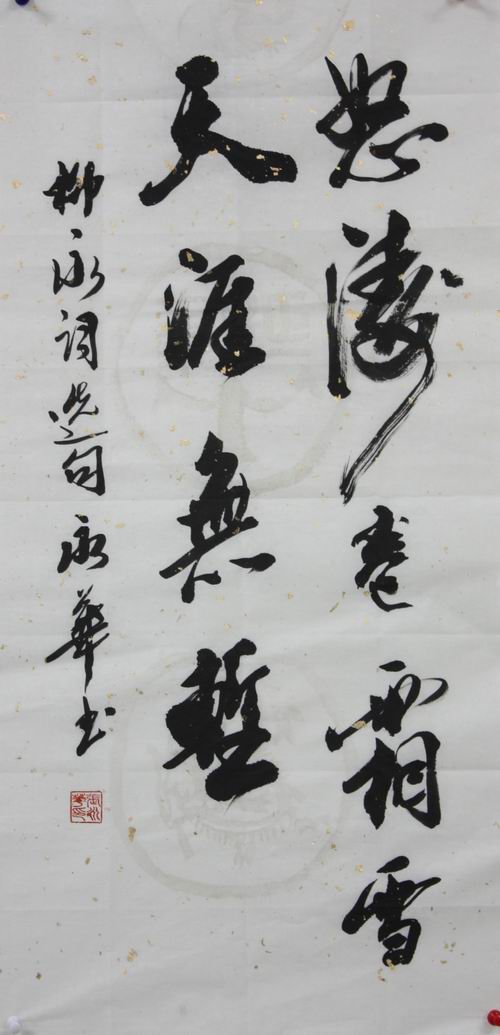 怒濤卷霜雪
天涯無塹
柳永詞选句 永華书